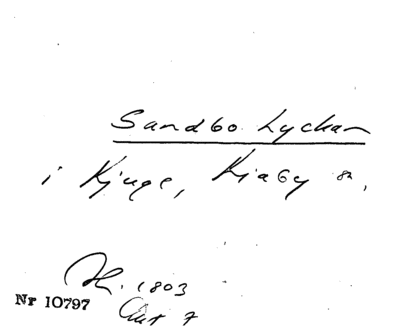 Sandbo Lyckan
i Kjuge, Kiaby sn,
1803
Nr 10797
Akt 7